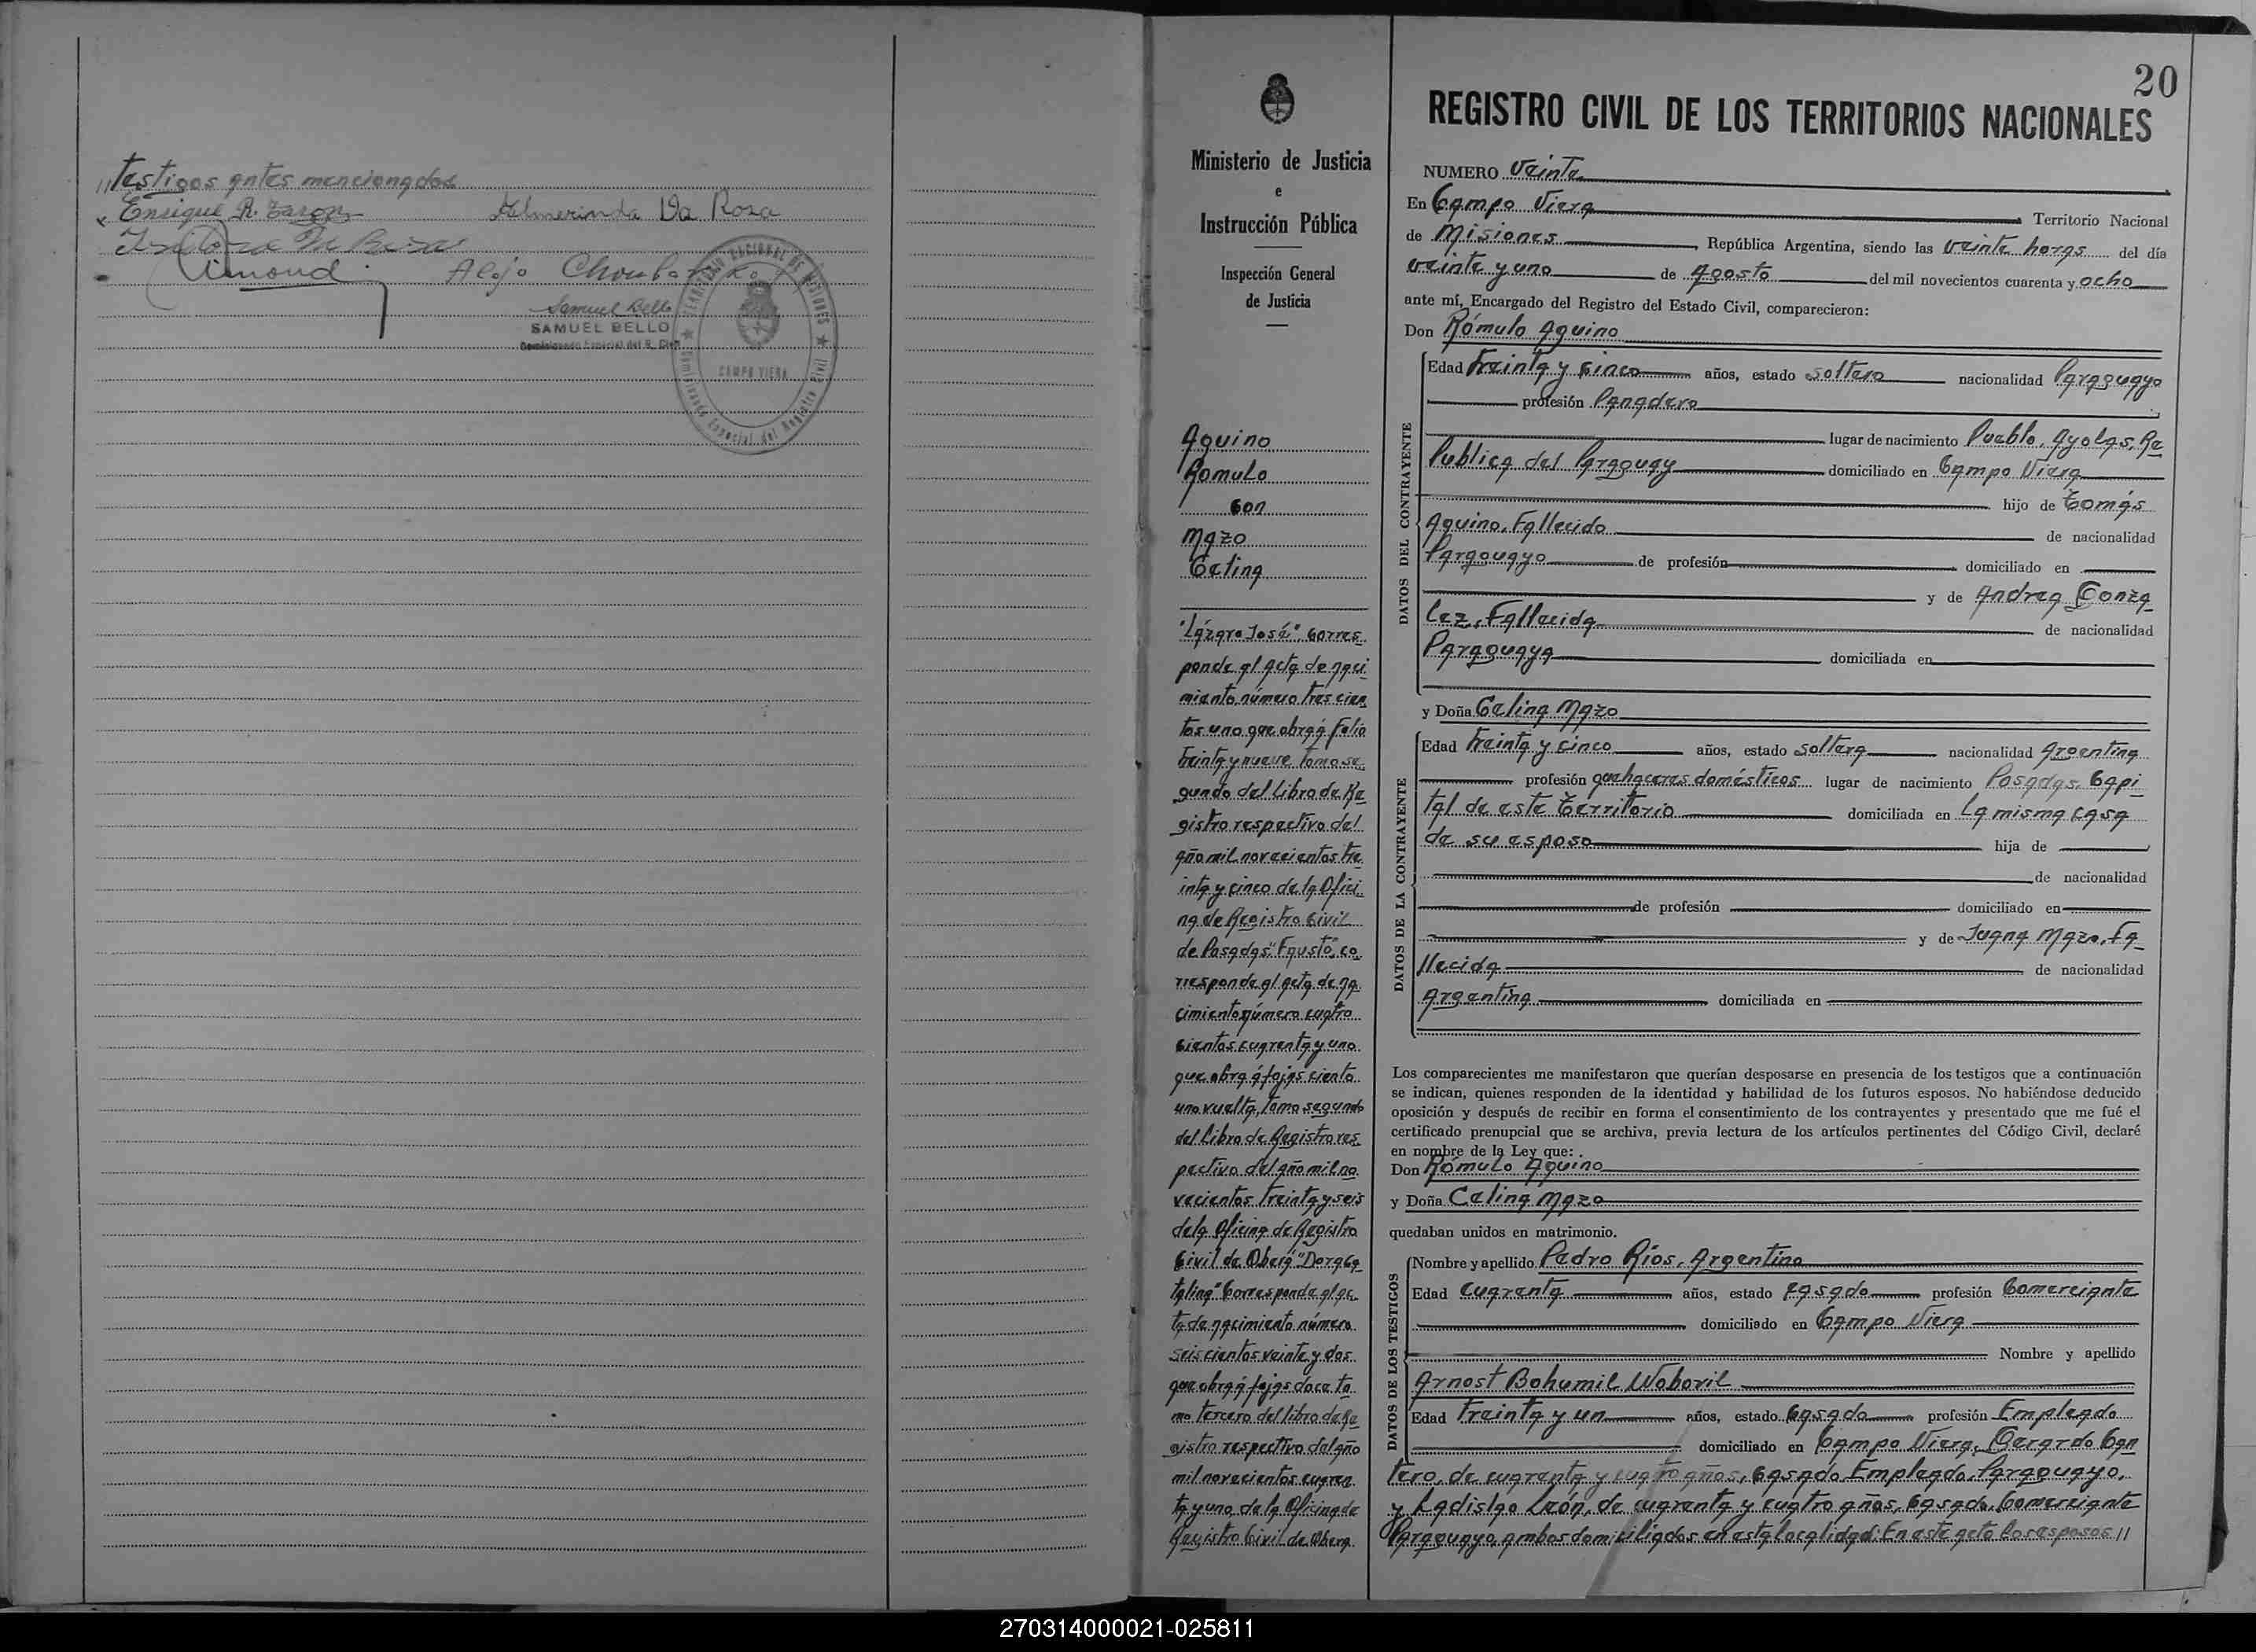 //testigos antes mencionados
Enrique R.
Almerinda Da Rosa
Alejo
Samuel Bello
SAMUEL BELLO
Comisionado Especial del R. Civil
TERRITORIO NACIONAL DE MISIONES
CAMPO VIERA
Comisionado Especial del Registro Civil
Ministerio de Justicia
e
Instrucción Pública
Inspección General
de Justicia
Aquino
Romulo
con
Mazo
Celina
"Lázaro José" Corres
ponde al acta de naci
miento número tres cien
tos uno que obra á folio
treinta y nueve tomo se
gundo del Libro de Re
gistro respectivo del
año mil novecientos tre
inta y cinco de la Ofici
na de Registro Civil
de Posadas "Fausto", co
rresponde al acta de na
cimiento número cuatro
cientos cuarenta y uno
que obra á fojas ciento
uno vuelta, tomo segundo
del Libro de Registro res
pectivo del año mil no
vecientos treinta y seis
de la Oficina de Registro
Civil de Oberá "Dora Ca
talina" Corresponde al ac
ta de nacimiento número
seiscientos veinte y dos
que obra á fojas doce to
mo tercero del libro de Re
gistro respectivo del año
mil novecientos cuaren
ta y uno de la Oficina de
Registro Civil de Oberá
20
REGISTRO CIVIL DE LOS TERRITORIOS NACIONALES
NUMERO Veinte
En Campo Viera Territorio Nacional
de Misiones República Argentina, siendo las veinte horas del día
veinte y uno de Agosto del mil novecientos cuarenta y ocho
ante mí, Encargado del Registro del Estado Civil, comparecieron:
Don Rómulo Aquino
DATOS DEL CONTRAYENTE
Edad treinta y cinco años, estado soltero nacionalidad Paraguayo
profesión Panadero
lugar de nacimiento Pueblo, Ayolas, Re
Publica del Paraguay domiciliado en Campo Viera
hijo de Tomás
Aquino, Fallecido de nacionalidad
Paraguayo de profesión domiciliado en
y de Andrea Gonza
lez, Fallecida de nacionalidad
Paraguaya domiciliada en
y Doña Celina Mazo
DATOS DE LA CONTRAYENTE
Edad treinta y cinco años, estado soltera nacionalidad Argentina
profesión quehaceres domésticos lugar de nacimiento Posadas, Capi
tal de este Territorio domiciliada en La misma casa
de su esposo hija de
de nacionalidad
de profesión domiciliado en
y de Juana Mazo, Fa
llecida de nacionalidad
Argentina domiciliada en
Los comparecientes me manifestaron que querían desposarse en presencia de los testigos que a continuación
se indican, quienes responden de la identidad y habilidad de los futuros esposos. No habiéndose deducido
oposición y después de recibir en forma el consentimiento de los contrayentes y presentado que me fué el
certificado prenupcial que se archiva, previa lectura de los artículos pertinentes del Código Civil, declaré
en nombre de la Ley que:
Don Rómulo Aquino
y Doña Celina Mazo
quedaban unidos en matrimonio.
DATOS DE LOS TESTIGOS
Nombre y apellido Pedro Ríos, Argentino
Edad cuarenta años, estado casado profesión Comerciante
domiciliado en Campo Viera
Nombre y apellido
Arnost Bohumil Woboril
Edad Treinta y un años, estado Casado profesión Empleado
domiciliado en Campo Viera, Gerardo Can
tero, de cuarenta y cuatro años, Casado Empleado, Paraguayo,
y Ladislao León, de cuarenta y cuatro años, Casado, Comerciante
Paraguayo, ambos domiciliados en esta localidad: En este acto los esposos //
270314000021-025811